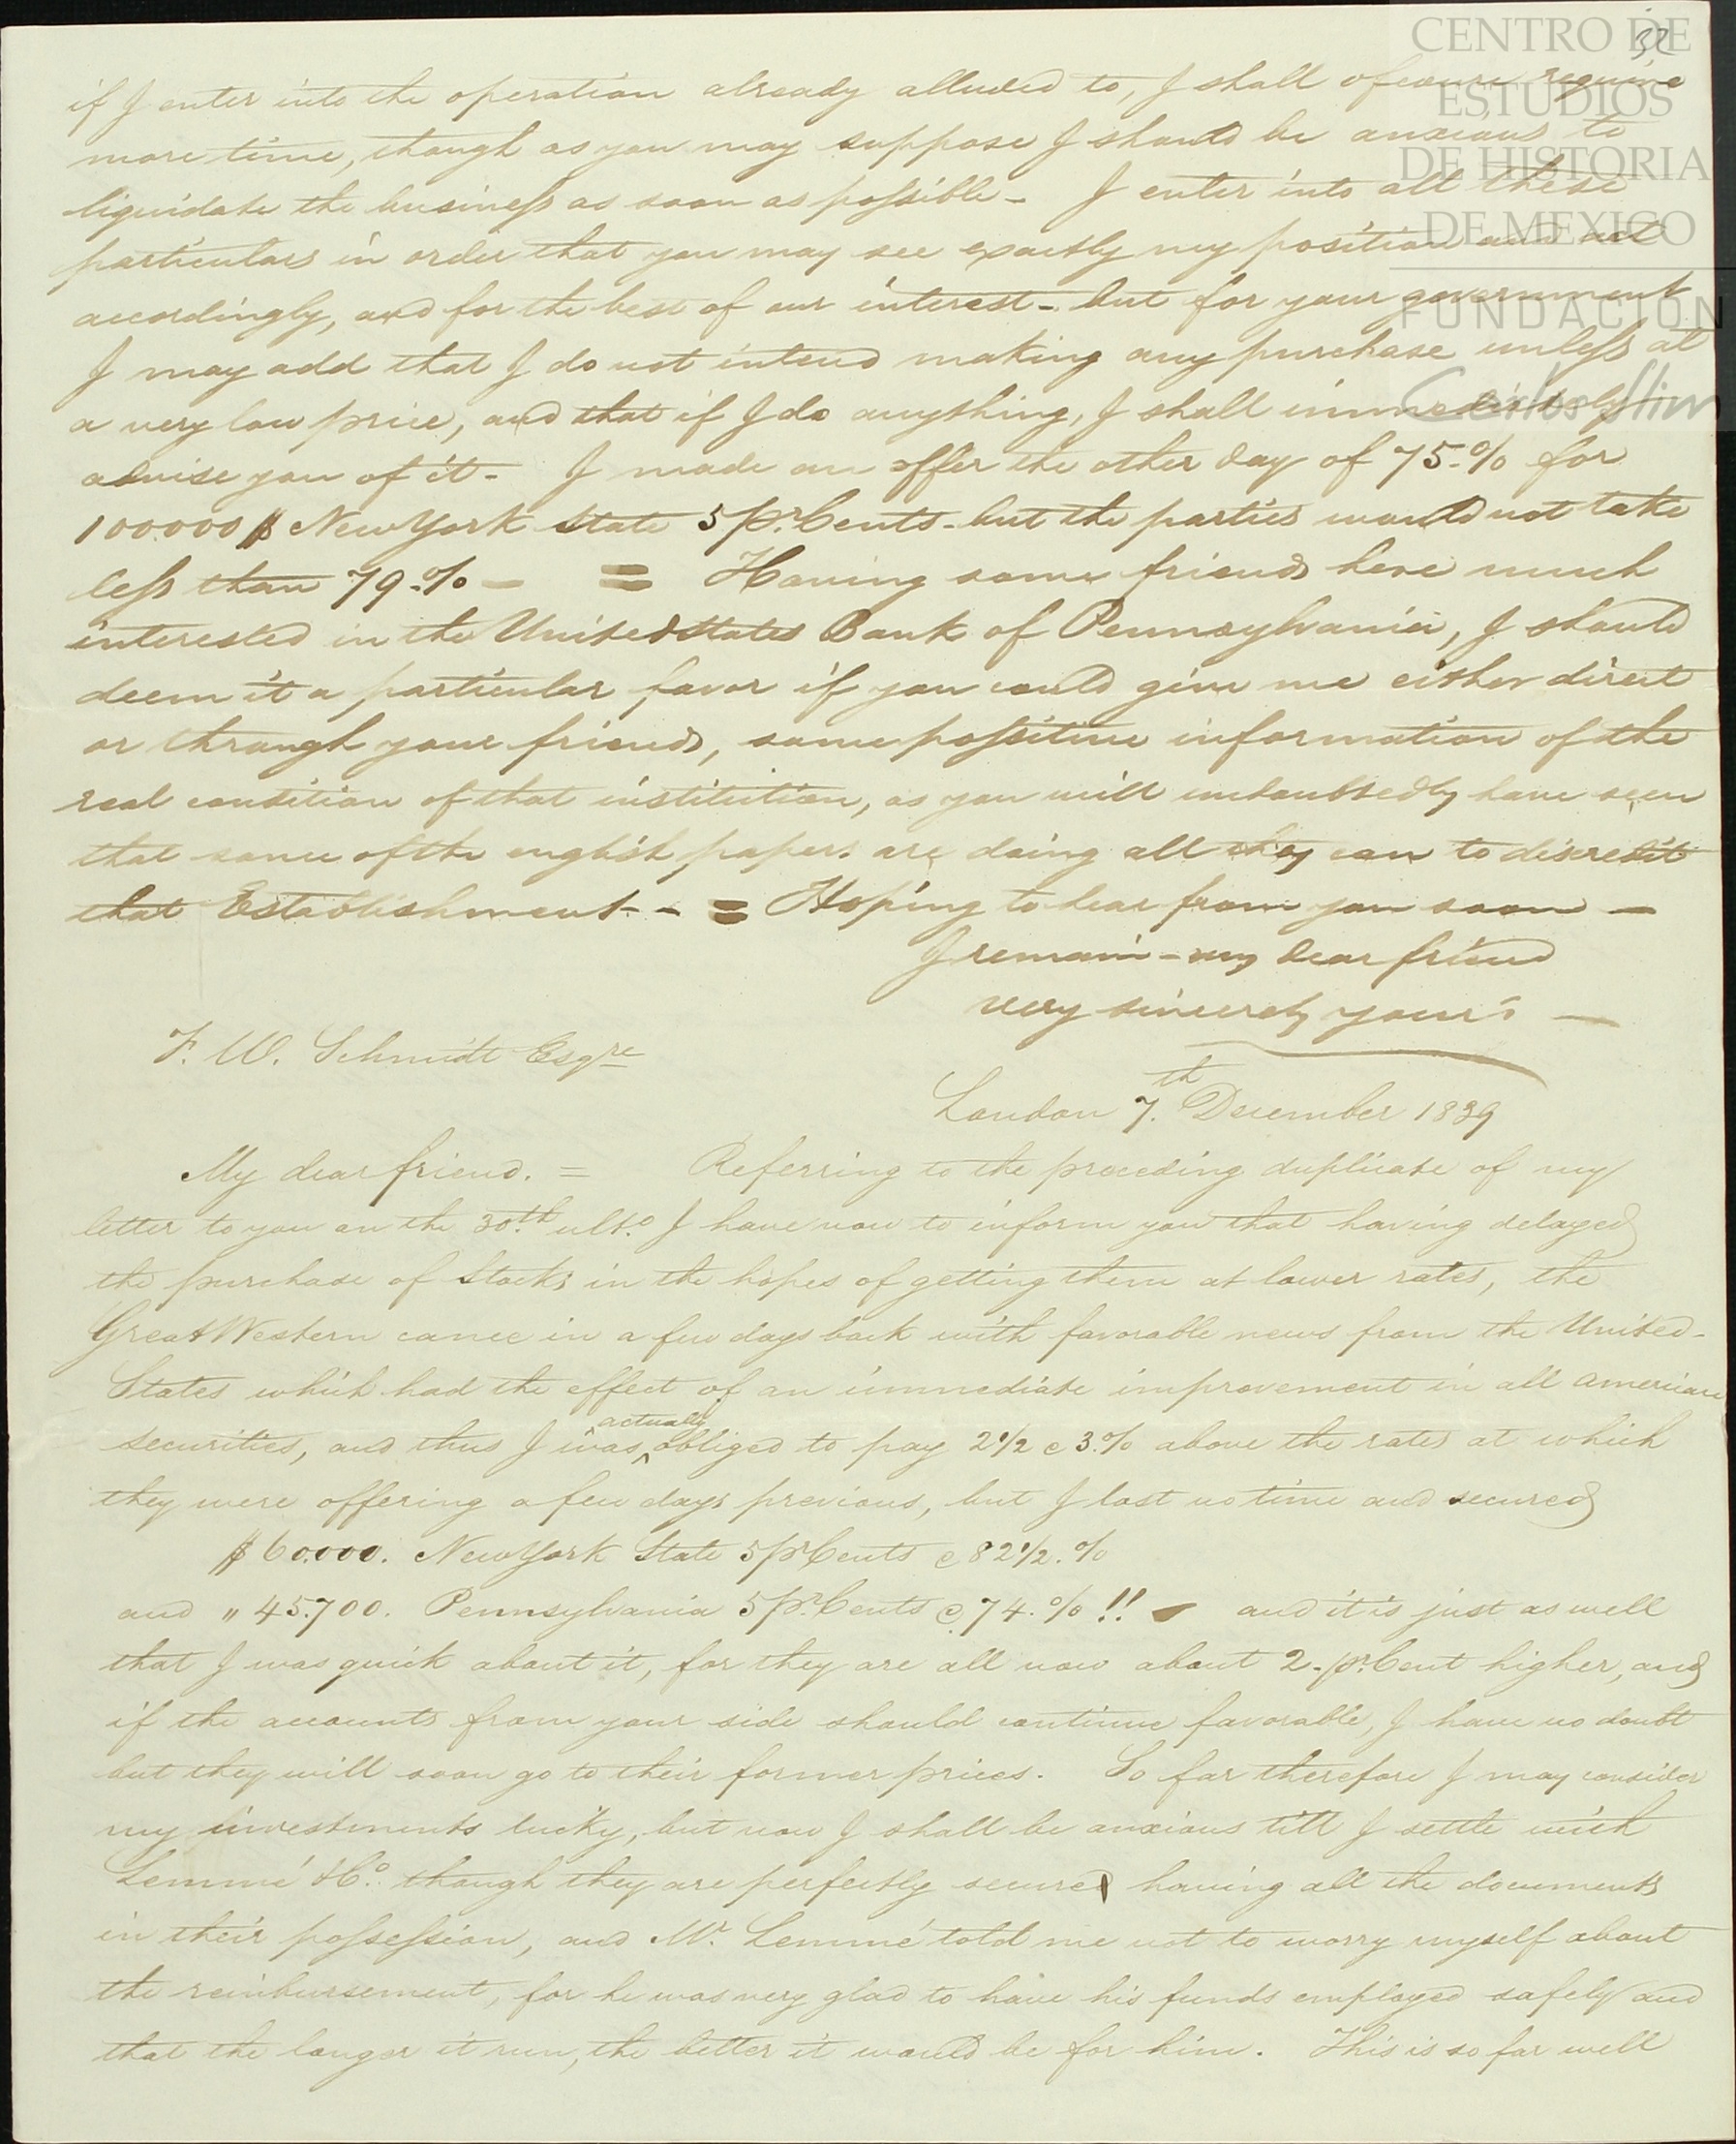 32
CENTRO DE
ESTUDIOS
DE HISTORIA
DE MEXICO
FUNDACIÓN
Carlos Slim
if I enter into the operation already alluded to, I shall of course require
more time, though as you may suppose I should be anxious to
liquidate the business as soon as possible - I enter into all these
particulars in order that you may see exactly my position and act
accordingly, and for the best of our interest - but for your government
I may add that I do not intend making any purchase unless at
a very low price, and that if I do anything, I shall immediately
advise you of it - I made an offer the other day of 75.% for
100.000 $ New York State 5 pr. Cents - but the parties would not take
less than 79.% - = Having some friends here much
interested in the United States Bank of Pennsylvania, I should
deem it a particular favor if you could give me either direct
or through your friends, some possitive information of the
real condition of that institution, as you will undoubtedly have seen
that some of the english papers are doing all they can to discredit
that Establishment - - = Hoping to hear from you soon -
I remain - my dear friend
very sincerely your's -
F. W. Schmidt Esqre
London 7.th December 1839
My dear friend. = Referring to the preceding duplicate of my
letter to you on the 30.th ulto. I have now to inform you that having delayed
the purchase of Stocks in the hopes of getting them at lower rates, the
Great Western came in a few days back with favorable news from the United-
States which had the effect of an immediate improvement in all american
securities, and thus I was actually obliged to pay 2 1/2 @ 3.% above the rates at which
they were offering a few days previous, but I lost no time and secured
$ 60.000. New York State 5 pr Cents @ 82 1/2.%
and " 45.700. Pennsylvania 5 pr. Cents @ 74.% !! - and it is just as well
that I was quick about it, for they are all now about 2. pr. Cent higher, and
if the accounts from your side should continue favorable, I have no doubt
but they will soon go to their former prices. So far therefore I may consider
my investments lucky, but now I shall be anxious till I settle with
Lemmé & Co. though they are perfectly secured having all the documents
in their possession, and Mr. Lemmé told me not to worry myself about
the reimbursement, for he was very glad to have his funds employed safely and
that the longer it run, the better it would be for him. This is so far well